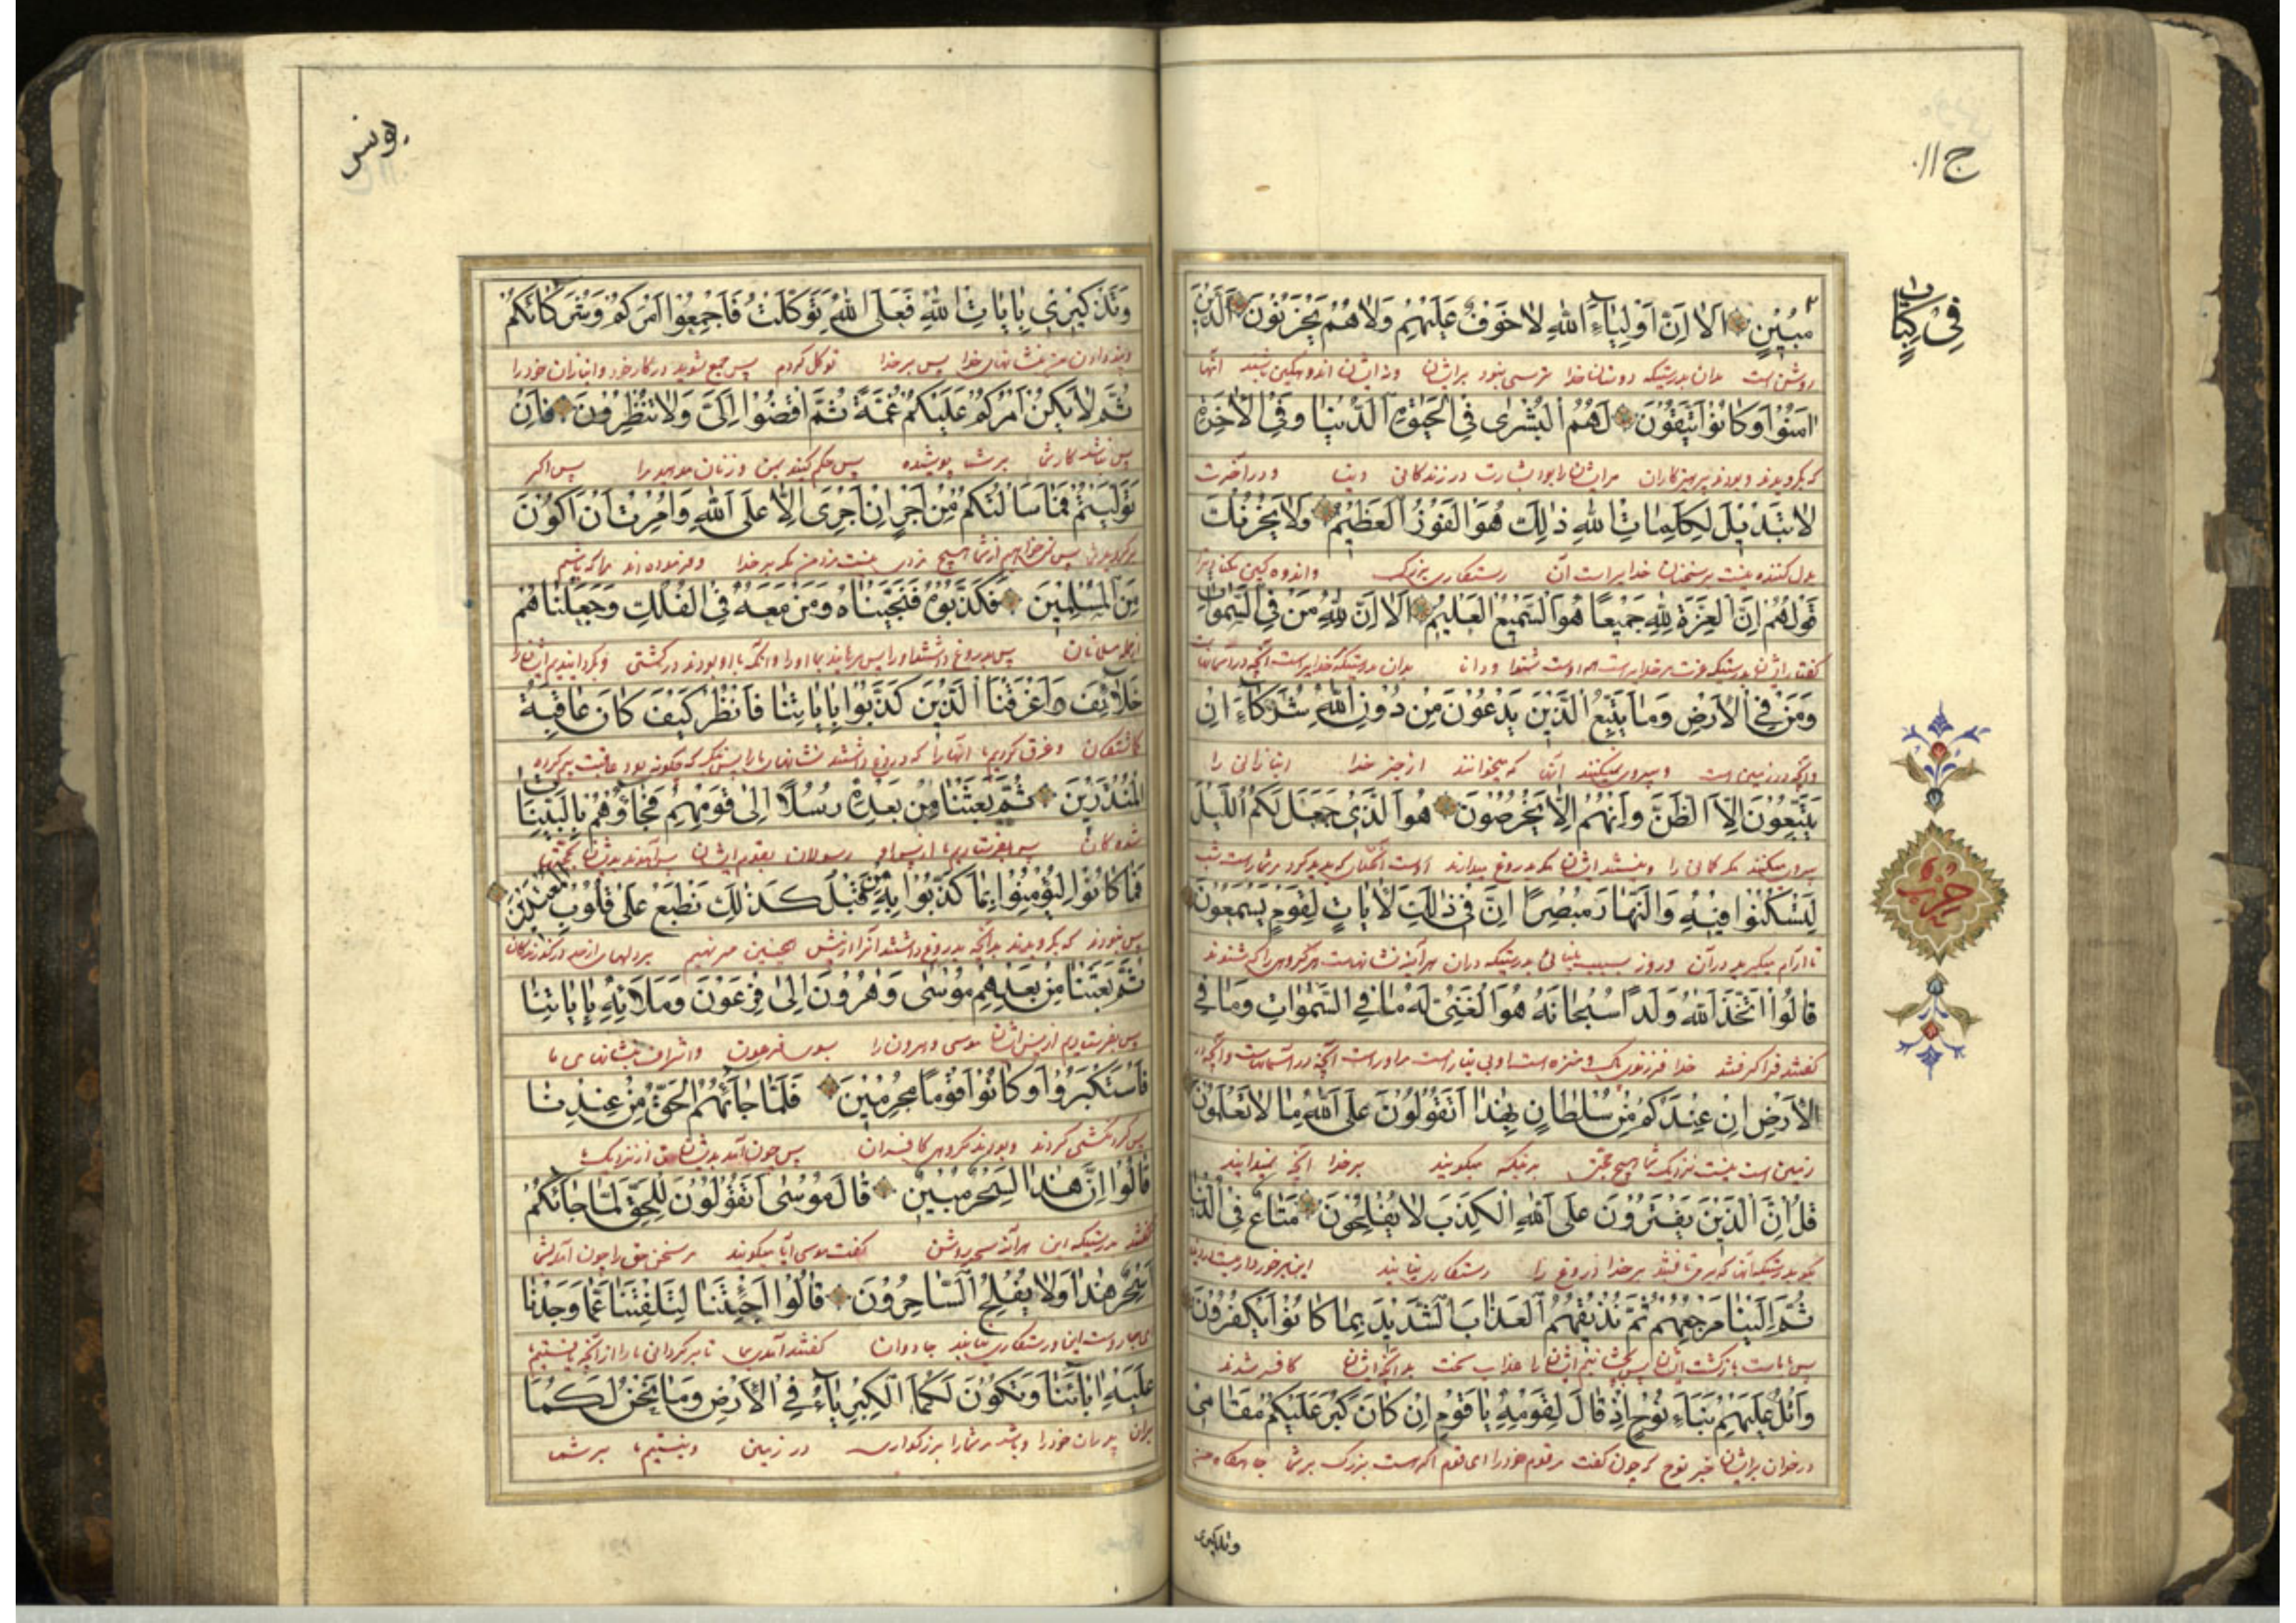 ج ١١
فِي كِتَابٍ
مُبِينٍ اَلَا اِنَّ اَوْلِيَاءَ اللهِ لَا خَوْفٌ عَلَيْهِمْ وَلَا هُمْ يَحْزَنُونَ اَلَّذِينَ
روشن است بدان بدرستیکه دوستان خدا ترسی نبود بر ایشان ونه ایشان اندوهگین باشند آنها
اٰمَنُوا وَكَانُوا يَتَّقُونَ لَهُمُ الْبُشْرٰى فِي الْحَيٰوةِ الدُّنْيَا وَفِي الْاٰخِرَةِ
که بگرویدند وبودند پرهیزکاران مر ایشانرا بود بشارت در زندگانی دنیا ودر آخرت
لَا تَبْدِيلَ لِكَلِمَاتِ اللهِ ذٰلِكَ هُوَ الْفَوْزُ الْعَظِيمُ وَلَا يَحْزُنْكَ
بدل کننده نیست مر سخنان خدایراست آن رستکاری بزرک واندوه کین نکند ترا
قَوْلُهُمْ اِنَّ الْعِزَّةَ لِلهِ جَمِيعًا هُوَ السَّمِيعُ الْعَلِيمُ اَلَا اِنَّ لِلهِ مَنْ فِي السَّمٰوَاتِ
کفتار ایشان بدرستیکه عزت مر خدایراست همه اوست شنوا ودانا بدان بدرستیکه خدایراست آنچه در آسمانهاست
وَمَنْ فِي الْاَرْضِ وَمَا يَتَّبِعُ الَّذِينَ يَدْعُونَ مِنْ دُونِ اللهِ شُرَكَاءَ اِنْ
وآنچه در زمین است وپیروی نمیکنند آنان که میخوانند از جز خدا انبازانی را
يَتَّبِعُونَ اِلَّا الظَّنَّ وَاِنْ هُمْ اِلَّا يَخْرُصُونَ هُوَ الَّذِي جَعَلَ لَكُمُ اللَّيْلَ
پیروی نمیکنند مکر کمانی را ونیستند ایشان مکر دروغ میدانند اوست آنکه پدید کرد بر شما راست شب
لِتَسْكُنُوا فِيهِ وَالنَّهَارَ مُبْصِرًا اِنَّ فِي ذٰلِكَ لَاٰيَاتٍ لِقَوْمٍ يَسْمَعُونَ
تا آرام میکیرید در آن وروز بسبب بینائی بدرستیکه در آن هر آینه نشانهاست مر کروهی را که شنوند
قَالُوا اتَّخَذَ اللهُ وَلَدًا سُبْحَانَهُ هُوَ الْغَنِيُّ لَهُ مَا فِي السَّمٰوَاتِ وَمَا فِي
کفتند فرا کرفت خدا فرزندی پاک ومنزه است او بی نیاز است مر اوراست آنچه در آسمانهاست وآنچه در
الْاَرْضِ اِنْ عِنْدَكُمْ مِنْ سُلْطَانٍ بِهٰذَا اَتَقُولُونَ عَلَى اللهِ مَا لَا تَعْلَمُونَ
زمین است نیست نزدیک شما هیچ حجتی برینکه میکویند بر خدا آنچه نمیدانید
قُلْ اِنَّ الَّذِينَ يَفْتَرُونَ عَلَى اللهِ الْكَذِبَ لَا يُفْلِحُونَ مَتَاعٌ فِي الدُّنْيَا
بکو بدرستیکه آنان که بر خدا دروغ را رستکاری نیابند این برخورداریست در دنیا
ثُمَّ اِلَيْنَا مَرْجِعُهُمْ ثُمَّ نُذِيقُهُمُ الْعَذَابَ الشَّدِيدَ بِمَا كَانُوا يَكْفُرُونَ
پس بماست بازکشت ایشان پس بچشانیم ایشانرا عذاب سخت بدانچه ایشان کافر شدند
وَاتْلُ عَلَيْهِمْ نَبَاَ نُوحٍ اِذْ قَالَ لِقَوْمِهِ يَا قَوْمِ اِنْ كَانَ كَبُرَ عَلَيْكُمْ مَقَامِي
در خوان بر ایشان خبر نوح که چون کفت مر قوم خود را ای قوم اکر هست بزرک بر شما جایکاه من
وتذکیری
حزب
یونس
وَتَذْكِيرِي بِاٰيَاتِ اللهِ فَعَلَى اللهِ تَوَكَّلْتُ فَاَجْمِعُوا اَمْرَكُمْ وَشُرَكَائَكُمْ
وپند دادن من بنشانهای خدا پس بر خدا توکل کردم پس جمع شوید در کار خود وانبازان خود را
ثُمَّ لَا يَكُنْ اَمْرُكُمْ عَلَيْكُمْ غُمَّةً ثُمَّ اقْضُوا اِلَيَّ وَلَا تُنْظِرُونِ فَاِنْ
پس نباشد کار شما بر شما پوشیده پس حکم کنید بمن وزمان مدهید مرا پس اکر
تَوَلَّيْتُمْ فَمَا سَاَلْتُكُمْ مِنْ اَجْرٍ اِنْ اَجْرِيَ اِلَّا عَلَى اللهِ وَاُمِرْتُ اَنْ اَكُونَ
پس نمیخواهم از شما هیچ مزدی نیست مزد من مکر بر خدا وفرموده اند مرا که باشم
مِنَ الْمُسْلِمِينَ فَكَذَّبُوهُ فَنَجَّيْنَاهُ وَمَنْ مَعَهُ فِي الْفُلْكِ وَجَعَلْنَاهُمْ
از جمله مسلمانان پس بدروغ داشتند اورا پس برهانیدیم اورا وآنکه با او بودند در کشتی وبکردانیدیم ایشانرا
خَلَائِفَ وَاَغْرَقْنَا الَّذِينَ كَذَّبُوا بِاٰيَاتِنَا فَانْظُرْ كَيْفَ كَانَ عَاقِبَةُ
وغرق کردیم آنها را که دروغ داشتند نشانهای ما را پس بنکر که چکونه بود عاقبت
الْمُنْذَرِينَ ثُمَّ بَعَثْنَا مِنْ بَعْدِهِ رُسُلًا اِلٰى قَوْمِهِمْ فَجَاؤُهُمْ بِالْبَيِّنَاتِ
شده کان پس بفرستادیم از پس او رسولان بقوم ایشان بیآمدند بدیشان
فَمَا كَانُوا لِيُؤْمِنُوا بِمَا كَذَّبُوا بِهِ مِنْ قَبْلُ كَذٰلِكَ نَطْبَعُ عَلٰى قُلُوبِ الْمُعْتَدِينَ
پس نبودند که بکرویدند بدآنچه بدروغ داشتند آنرا از پیش همچنین مهر نهیم بر دلهای از حد درکذرندکان
ثُمَّ بَعَثْنَا مِنْ بَعْدِهِمْ مُوسٰى وَهٰرُونَ اِلٰى فِرْعَوْنَ وَمَلَائِهِ بِاٰيَاتِنَا
پس بفرستادیم از پس ایشان موسی وهرون را بسوی فرعون واشراف بنشانهای ما
فَاسْتَكْبَرُوا وَكَانُوا قَوْمًا مُجْرِمِينَ فَلَمَّا جَائَهُمُ الْحَقُّ مِنْ عِنْدِنَا
پس کردنکشی کردند وبودند کروهی کافران پس چون آمد بدیشان حق از نزدیک ما
قَالُوا اِنَّ هٰذَا لَسِحْرٌ مُبِينٌ قَالَ مُوسٰى اَتَقُولُونَ لِلْحَقِّ لَمَّا جَائَكُمْ
کفتند بدرستیکه این هر آینه سحر روشن کفت موسی آیا میکویند مر سخن حق را چون آمد بشما
اَسِحْرٌ هٰذَا وَلَا يُفْلِحُ السَّاحِرُونَ قَالُوا اَجِئْتَنَا لِتَلْفِتَنَا عَمَّا وَجَدْنَا
این ورستکاری نیابند جادوان کفتند آمدی بما تا برکردانی ما را از آنچه یافتیم
عَلَيْهِ اٰبَائَنَا وَتَكُونَ لَكُمَا الْكِبْرِيَاءُ فِي الْاَرْضِ وَمَا نَحْنُ لَكُمَا
بران پدران خود را وباشد مر شما را بزرکواری در زمین ونیستیم ما بر شما